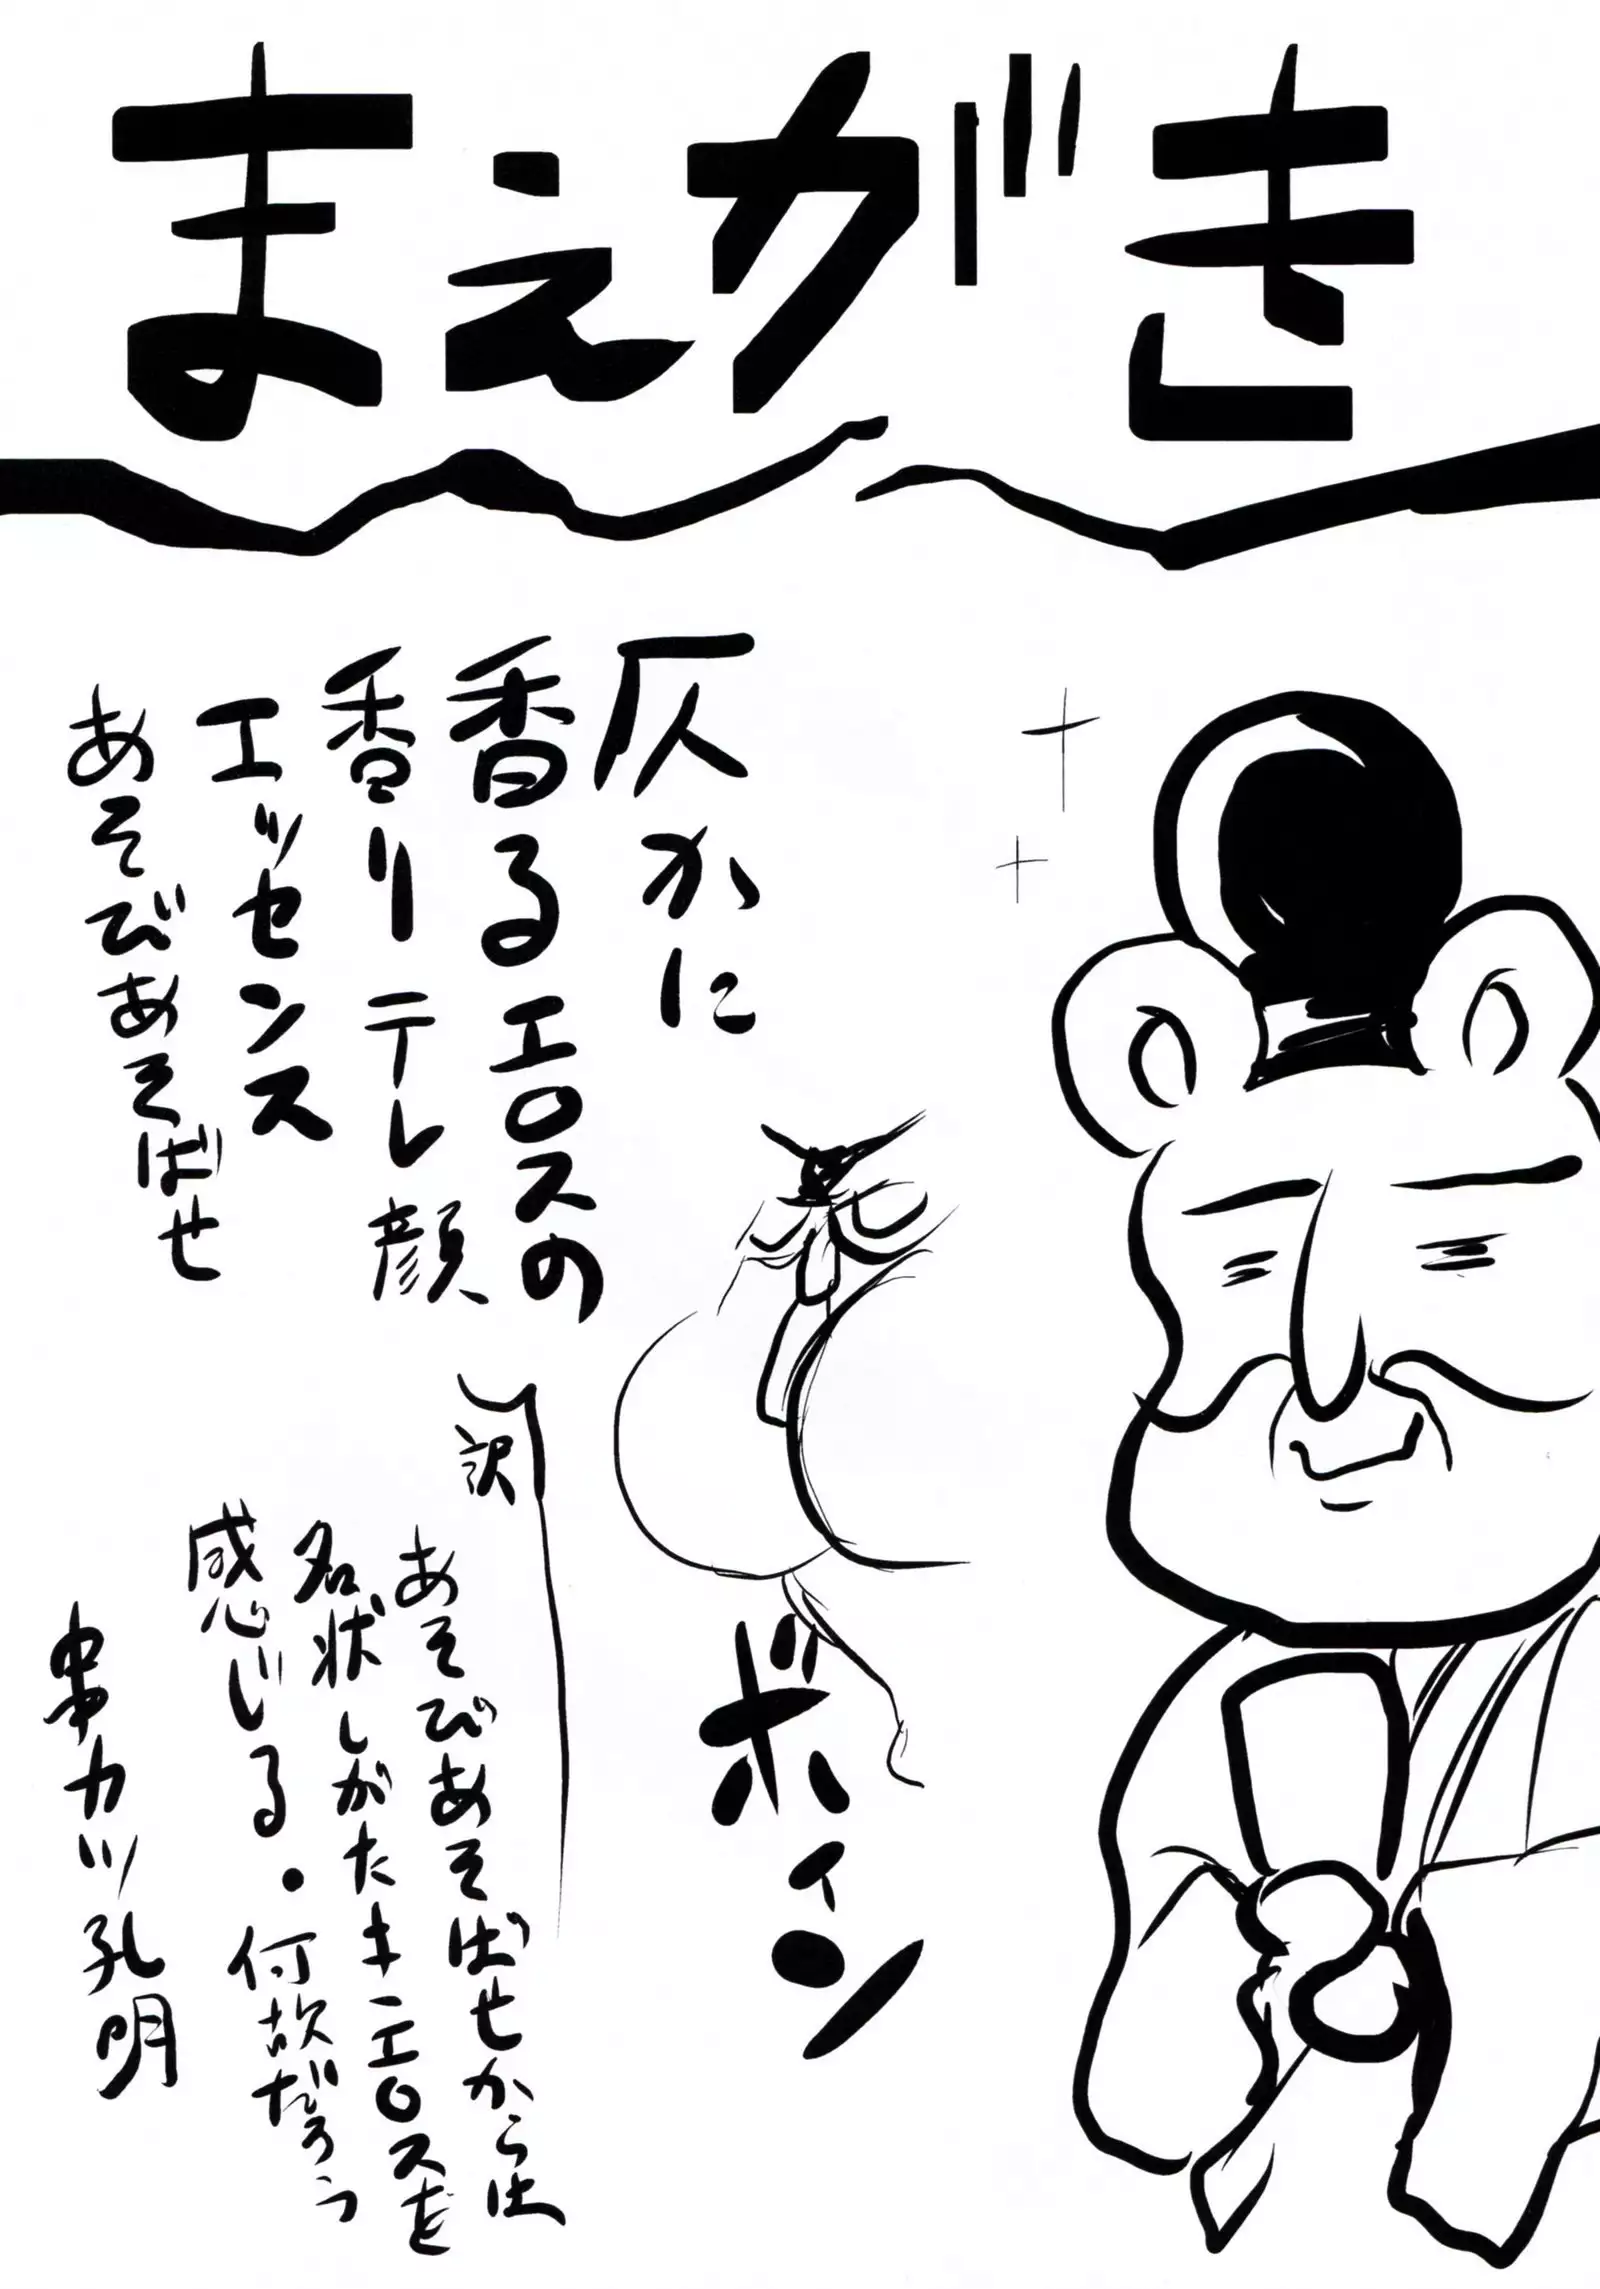 まえがき
仄かに
香るエロスの
香りテレ顔
エッセンス
あそびあそばせ
ボイン
訳
あそびあそばせからは
名状しがたキエロスを
感じる・何故だろう
串カツ孔明